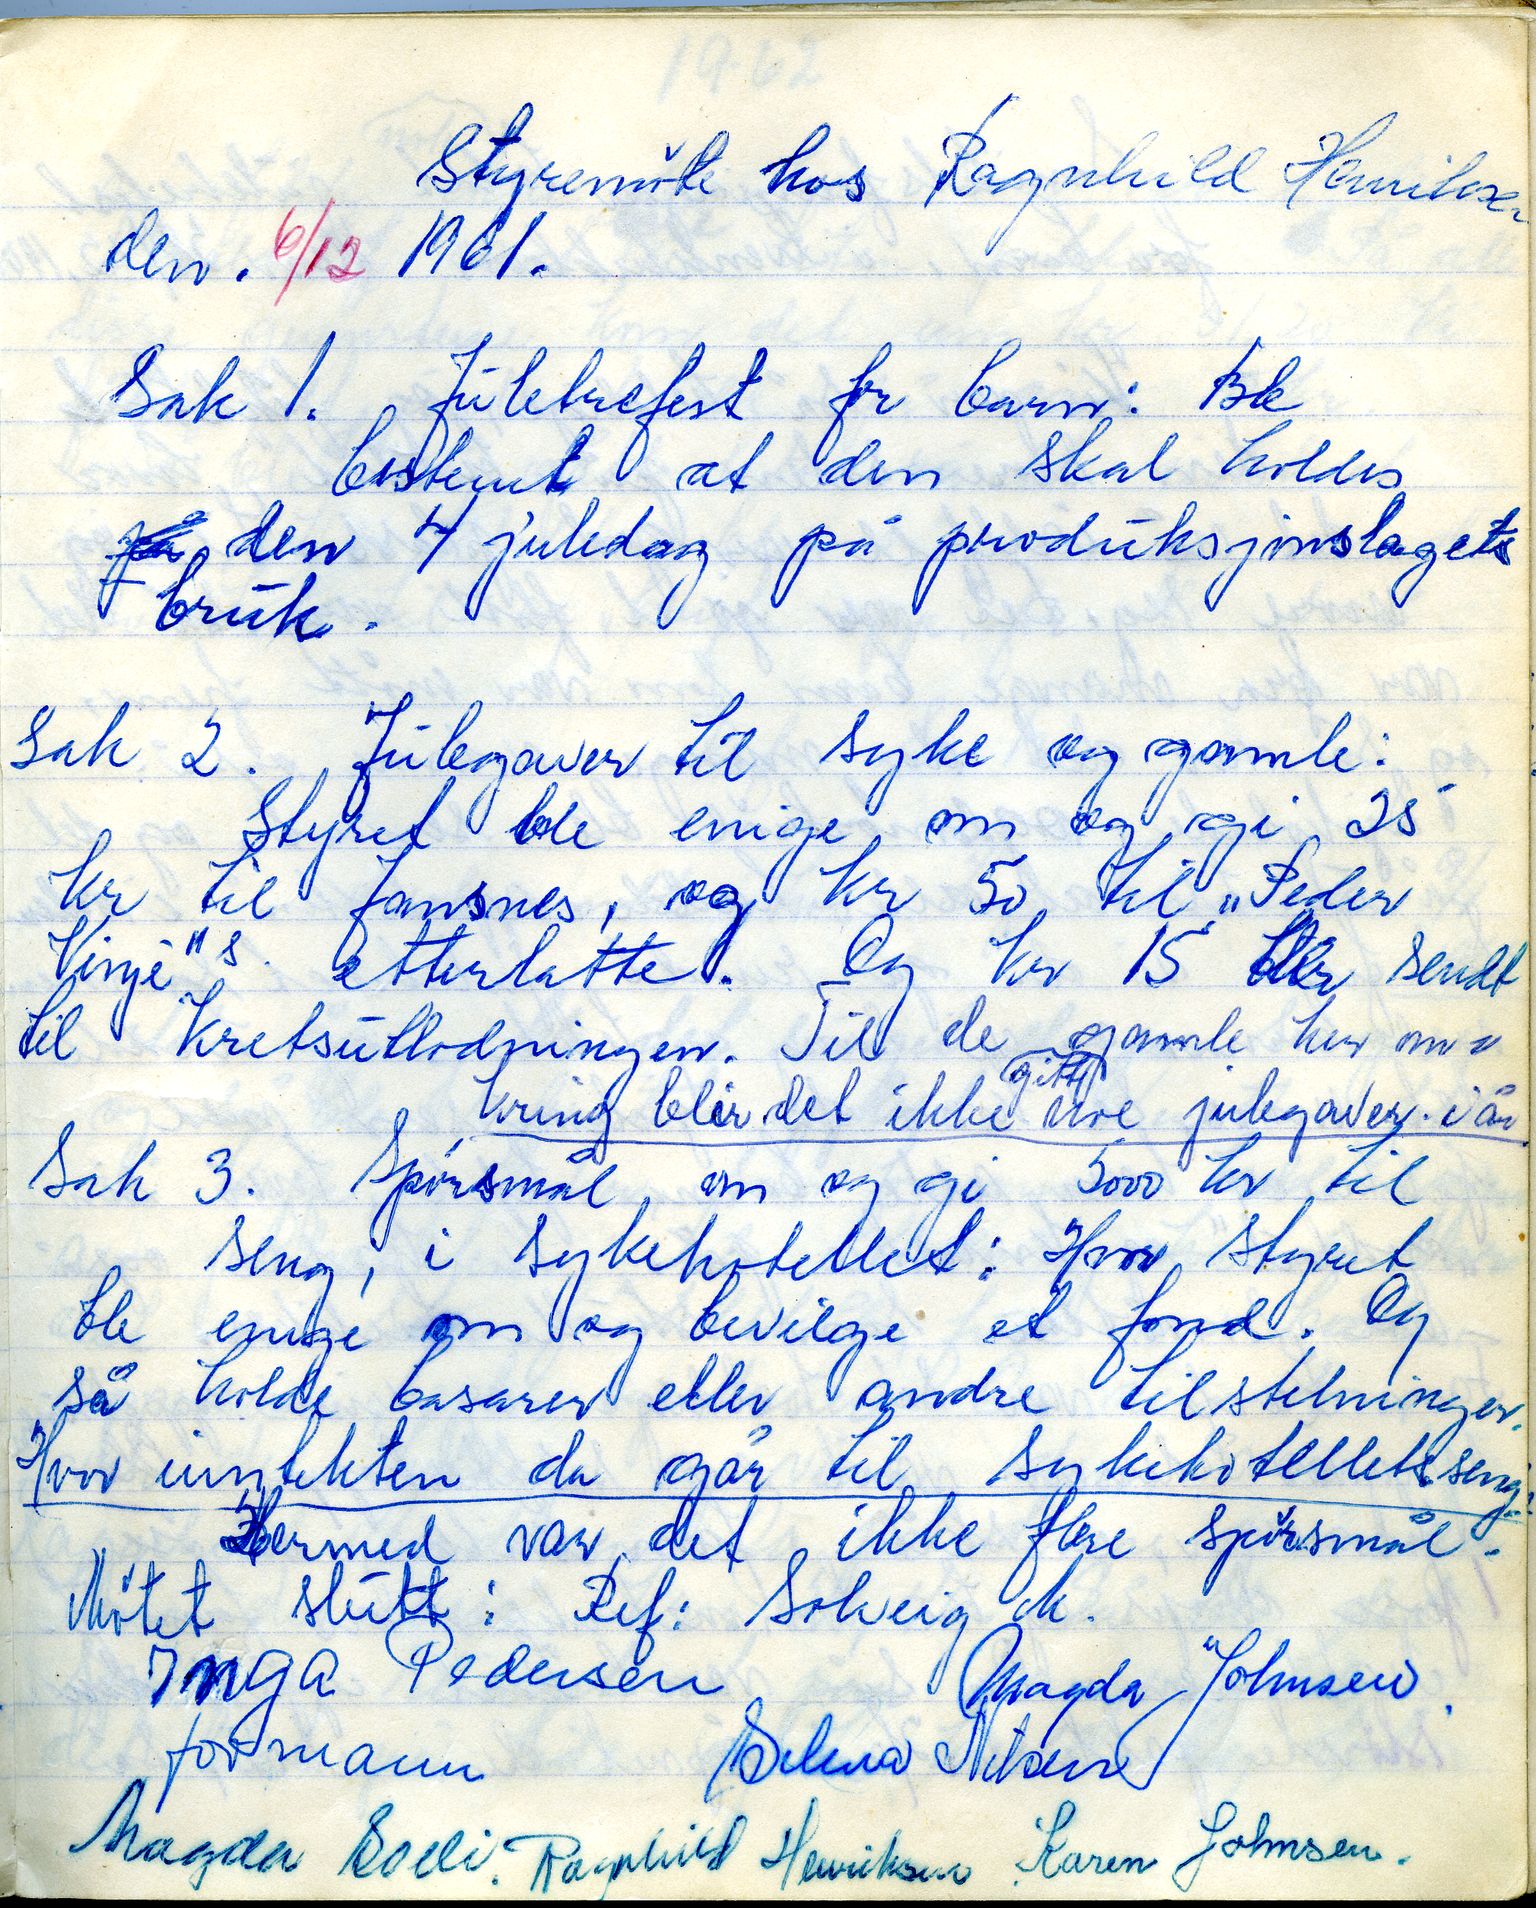 Styremöte hos Ragnhild Henriksen
den. 6/12 1961.
Sak 1. Juletrefest for barn: Ble
bestemt at den skal holdes
på den 4 juledag på produksjonslagets
bruk.
Sak 2. Julegaver til syke og gamle:
Styret ble enige om og gi 25
kr til Jansnes, og kr 50 til "Peder
Vinje"s etterlatte. Og kr 15 blir sendt
til Kretsutlodningen. Til de gamle her om
kring blir det ikke gitt noe julegaver i år
Sak 3. Spörsmål om og gi 5000 kr til
seng, i sykehotellet: Hvor styret
ble enige om og bevilge et fond. Og
så holde basarer eller andre tilstelninger.
Hvor inntekten da går til sykehotellets seng.
Hermed var det ikke flere spörsmål.
Mötet slutt: Ref: Solveig M.
Inga Pedersen Magda Johnsen.
formann Selma Nilsen
Magda Soleli. Ragnhild Henriksen Karen Johnsen.